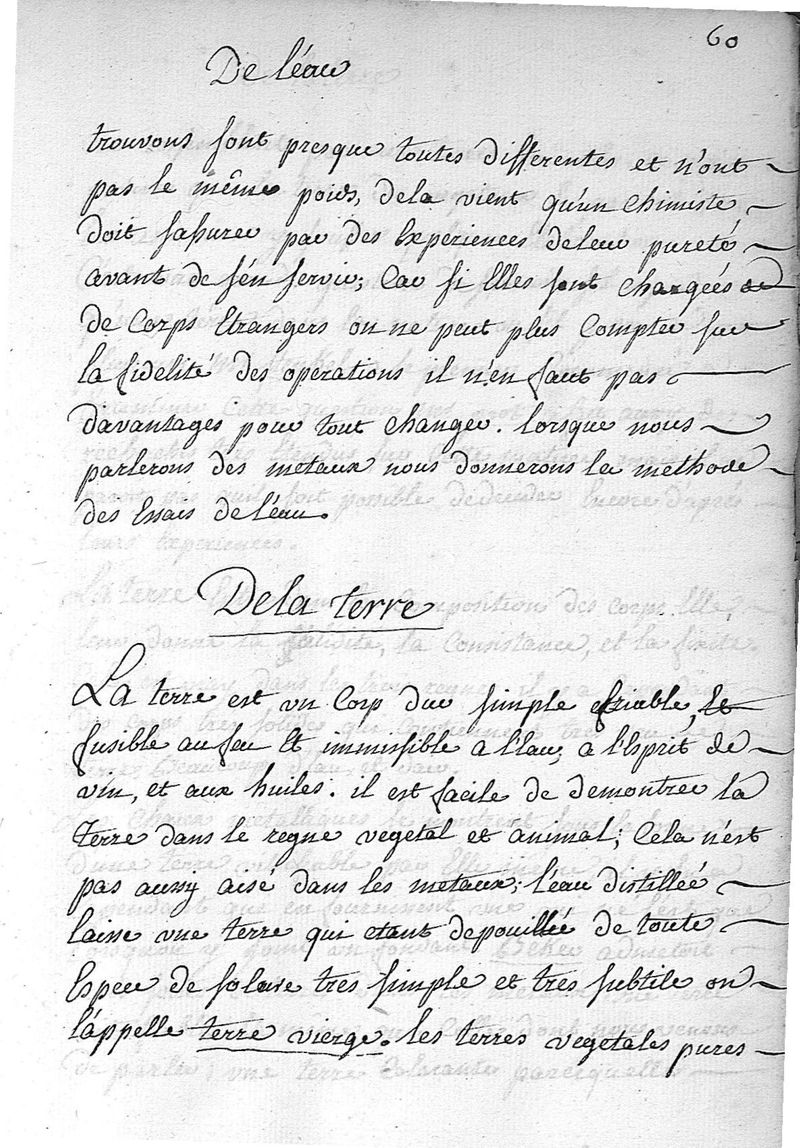 60
De l'éau
trouvons sont presque toutes differentes et n'ont
pas le même poids, dela vient qu'un chimiste
doit s'assurer par des Experiences deleur pureté
avant de s'én servir; Car si Elles sont chargéés
de Corps Etrangers on ne peut plus Compter sur
la fidelité des operations il n'en faut pas
davantages pour tout changer. lorsque nous
parlerons des metaux nous donnerons la methode
des Essais de l'éau.
Dela terre
La terre est un Corp dur simple friable,
fusible au feu Et immisible a l'Eau, a l'Esprit de
vin, et aux huiles. il est facile de demontrer la
terre dans le regne vegetal et animal; Cela n'est
pas aussy aisé dans les metaux; l'éau distilléé
laisse une terre qui etant depouilléé de toute
Espece de tres simple et tres subtile on
l'appelle terre vierge. les terres vegetales pures